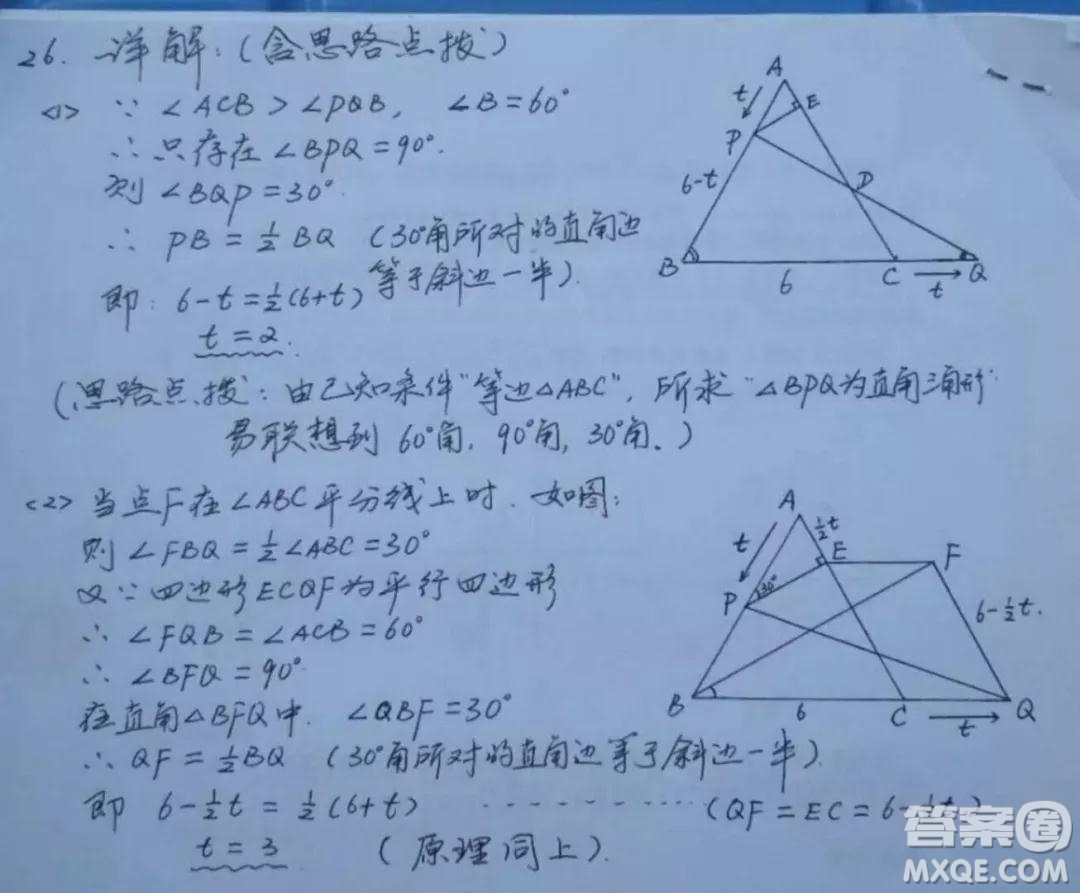 26. 详解:(含思路点拨)
<1> ∵ ∠ACB > ∠PQB, ∠B = 60°
∴ 只存在 ∠BPQ = 90°.
则 ∠BQP = 30°.
∴ PB = ½ BQ (30°角所对的直角边
等于斜边一半).
即: 6-t = ½(6+t)
t = 2.
A
t
E
P
6-t
D
B
6
C
t
Q
(思路点拨: 由已知条件"等边△ABC", 所求"△BPQ为直角三角形"
易联想到 60°角, 90°角, 30°角.)
<2> 当点F在∠ABC平分线上时. 如图:
则 ∠FBQ = ½∠ABC = 30°
又∵ 四边形ECQF为平行四边形
∴ ∠FQB = ∠ACB = 60°
∴ ∠BFQ = 90°
在直角△BFQ中. ∠QBF = 30°
∴ QF = ½BQ (30°角所对的直角边等于斜边一半).
即 6-½t = ½(6+t) ---------- (QF = EC = 6-½t)
t = 3 (原理同上).
A
½t
t
E
F
30°
P
6-½t.
B
6
C
t
Q
答案圈
MXQE.COM